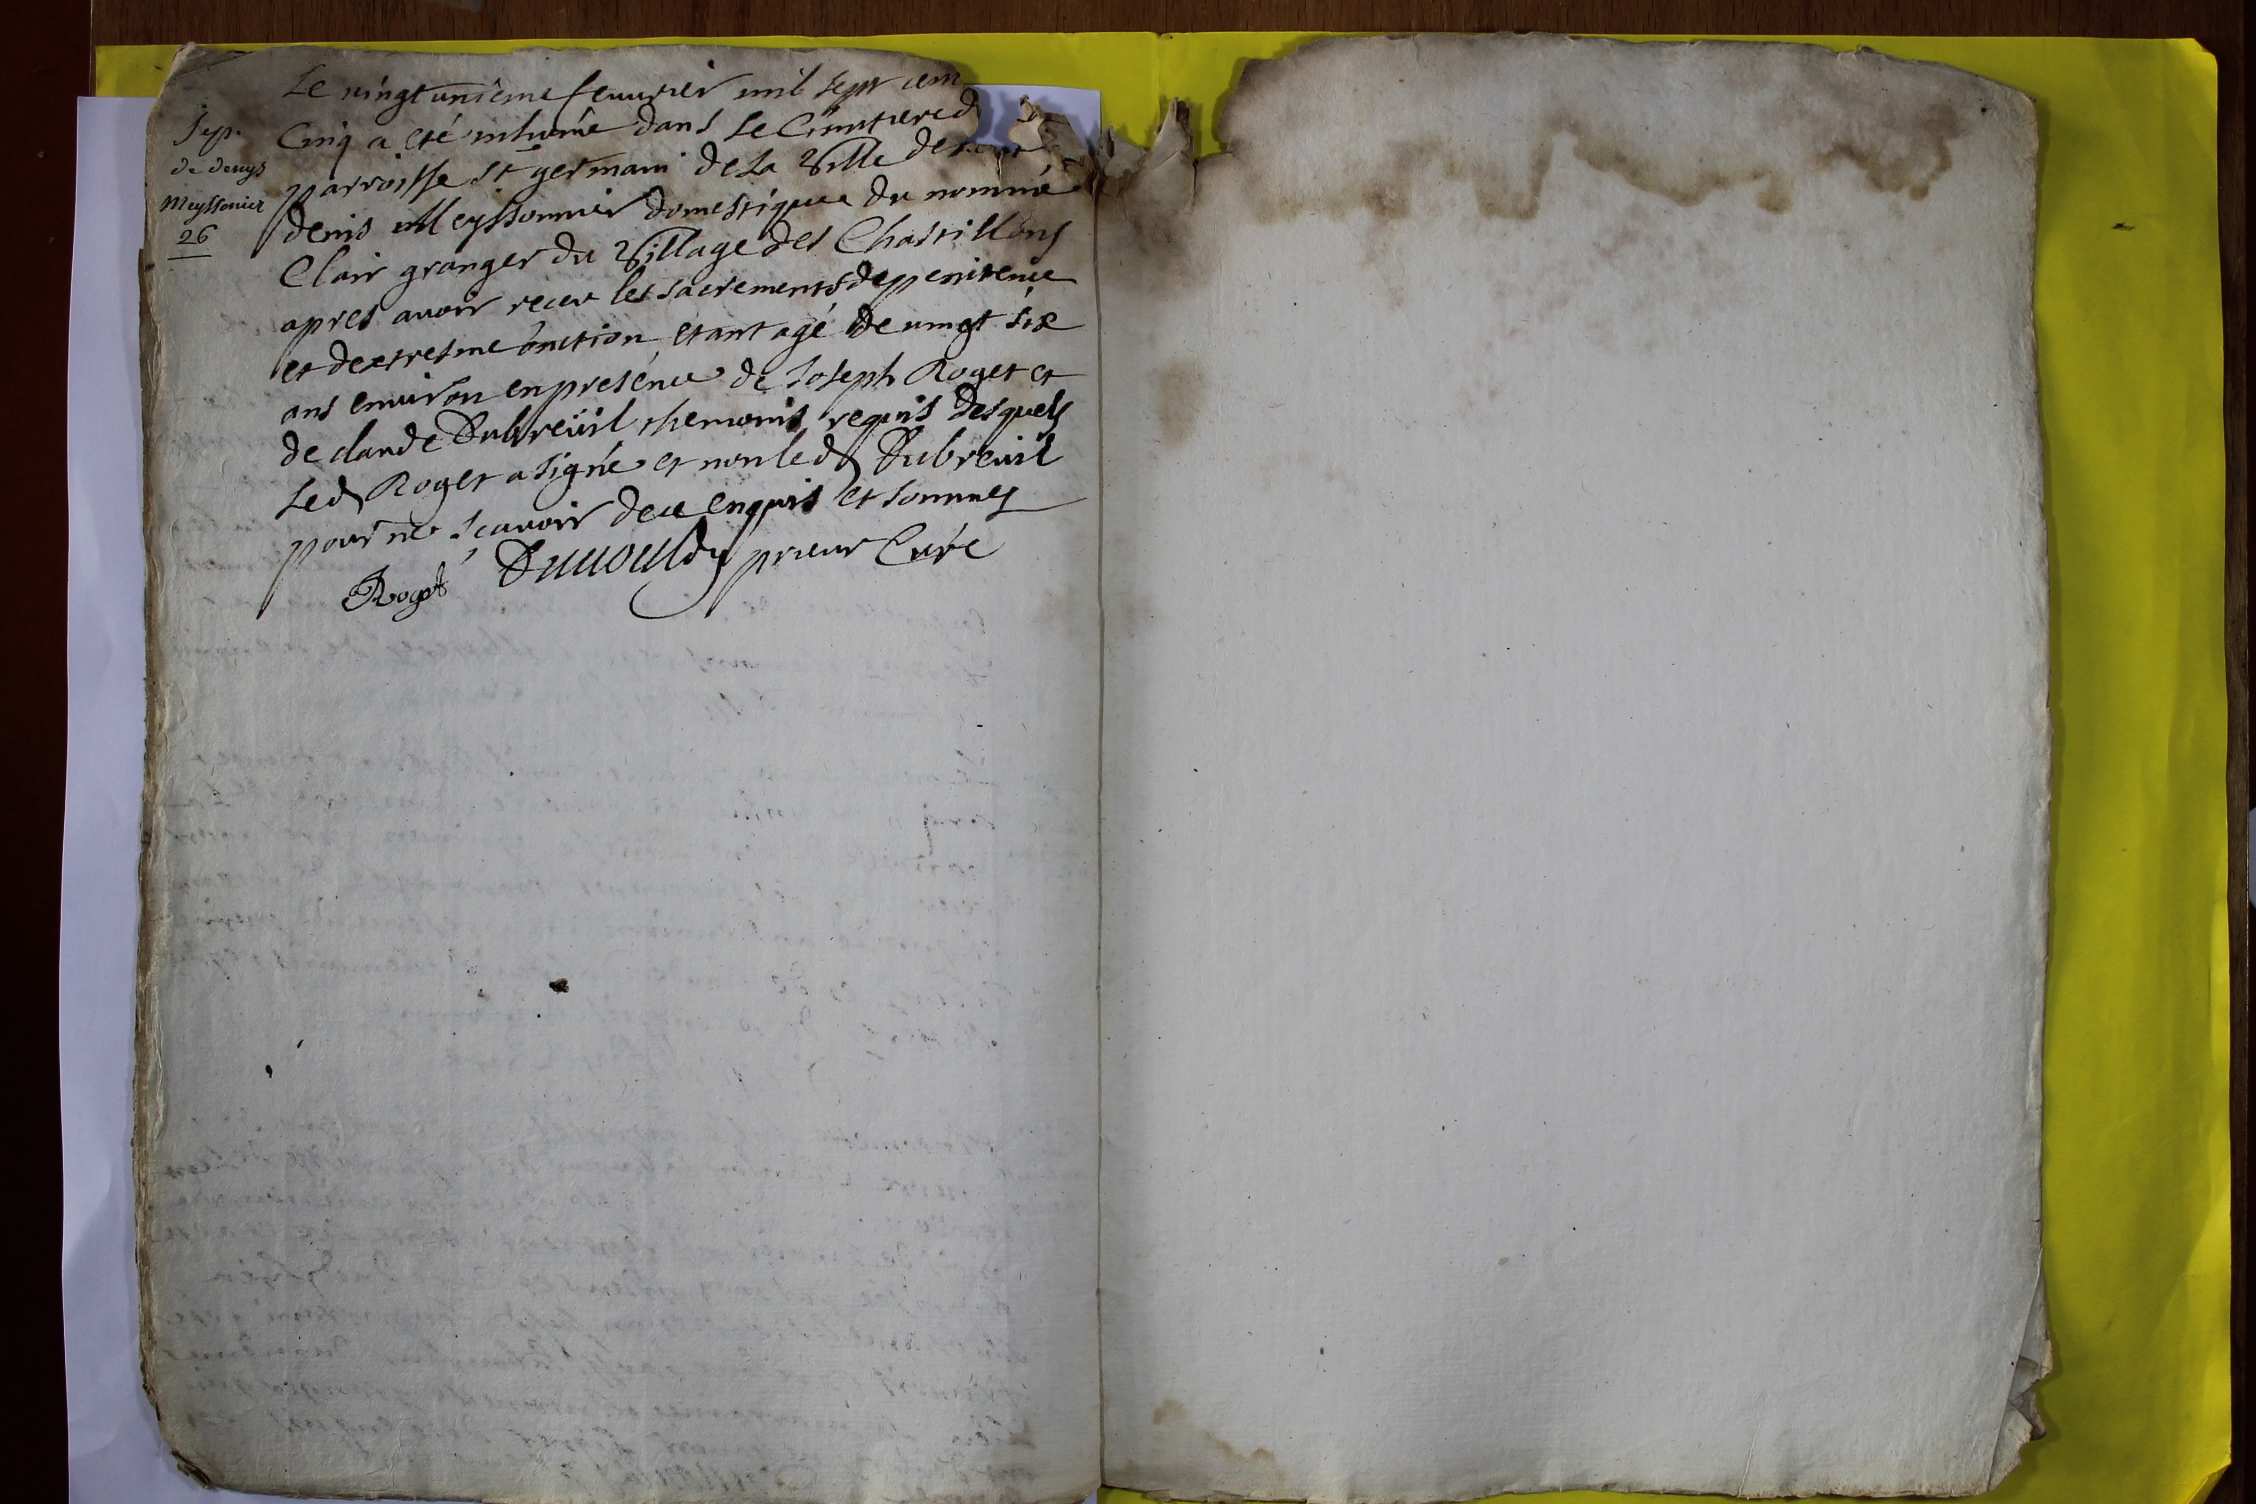 Sep.
de denys
Meyssonier
26
Le vingt unième feuvrier mil sept cen
Cinq a eté inhumé dans le Cimitiere d
parroisse st germain de la Ville de
denis Meyssonnier domestique du nommé
Clair granger du Village des Chastillons
apres avoir receu les sacrements de penitence
et dextresme onction etant agé de vingt six
ans environ en presence de Joseph Roget et
de claude Dubreüil themoins requis desquels
led Roget a signé et non led Dubreüil
pour ne scavoir de ce enquis et sommes
Roget prieur Curé